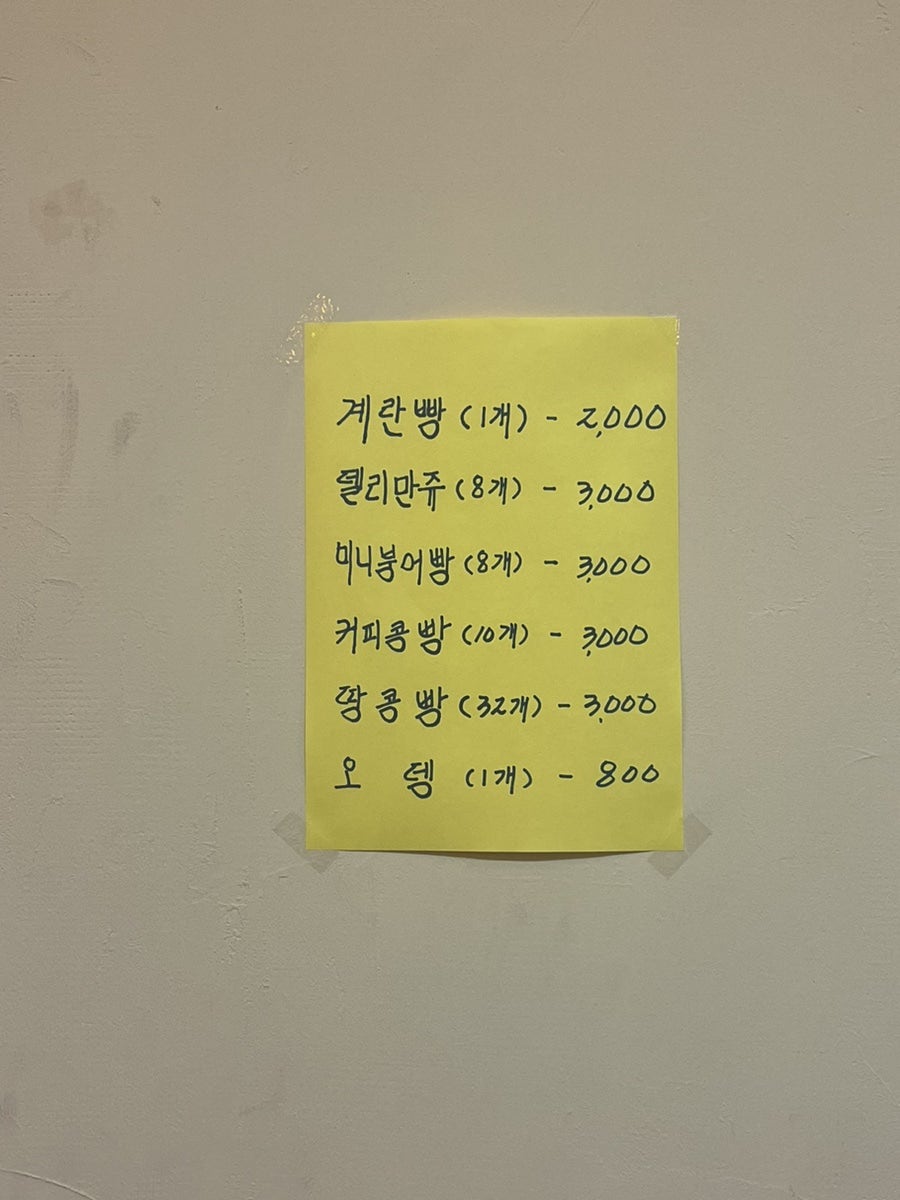 계란빵 (1개) - 2,000
델리만쥬 (8개) - 3,000
미니붕어빵 (8개) - 3,000
커피콩빵 (10개) - 3,000
땅콩빵 (32개) - 3,000
오뎅 (1개) - 800